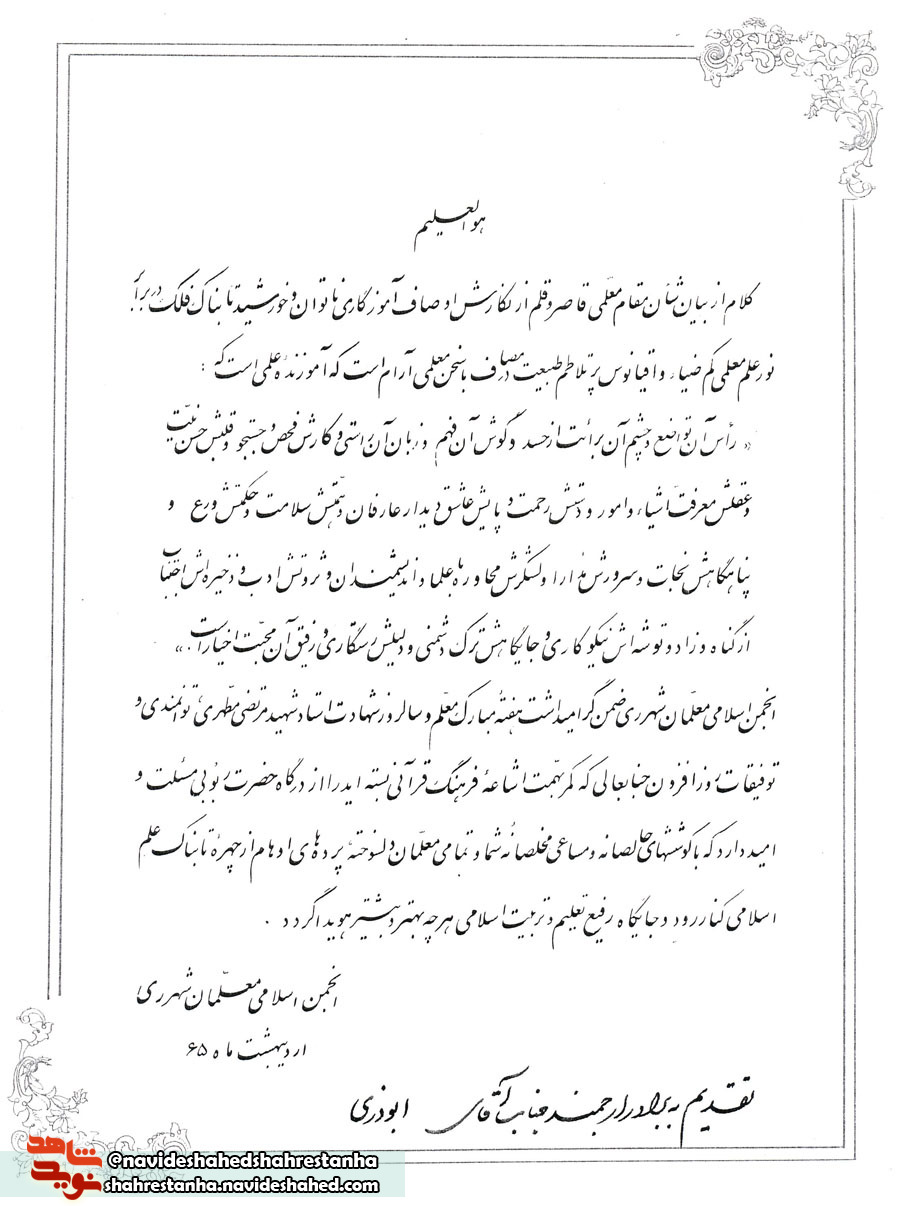 هوالعلیم
کلام از بیان شأن مقام معلمی قاصر و قلم از نگارش اوصاف آموزگاری ناتوان و خورشید تابناک فلک در برابر
نور علم معلمی کم ضیاء و اقیانوس پرتلاطم طبیعت در مصاف با سخن معلمی آرام است که آموزندهٔ علمی است که :
« رأس آن تواضع و چشم آن برائت از حسد و گوش آن فهم و زبان آن راستی و کارش فحص و جستجو و قلبش حسن نیت
و عقلش معرفت اشیاء و امور و دستش رحمت و پایش عاشق دیدار عارفان و همتش سلامت و حکمتش ورع و
پناهگاهش نجات و سرورش مدارا و لشگرش محاوره با علما و اندیشمندان و ثروتش ادب و ذخیره‌اش اجتناب
از گناه و زاد و توشه‌اش نیکوکاری و جایگاهش ترک دشمنی و دلیلش رستگاری و رفیق آن محبت اخیار است . »
انجمن اسلامی معلمان شهرری ضمن گرامیداشت هفتهٔ مبارک معلم و سالروز شهادت استاد شهید مرتضی مطهری، توانمندی و
توفیقات روزافزون جنابعالی که کمر بهمت اشاعهٔ فرهنگ قرآنی بسته اید را از درگاه حضرت ربوبی مسئلت و
امید دارد که با کوششهای خالصانه و مساعی مخلصانهٔ شما و تمامی معلمان دلسوخته پرده های اوهام از چهرهٔ تابناک علم
اسلامی کنار رود و جایگاه رفیع تعلیم و تربیت اسلامی هر چه بهتر و بیشتر هویدا گردد .
انجمن اسلامی معلمان شهرری
اردیبهشت ماه ۶۵
تقدیم به برادر ارجمند جناب آقای ابوذری
نوید شاهد
@navideshahedshahrestanha
shahrestanha.navideshahed.com